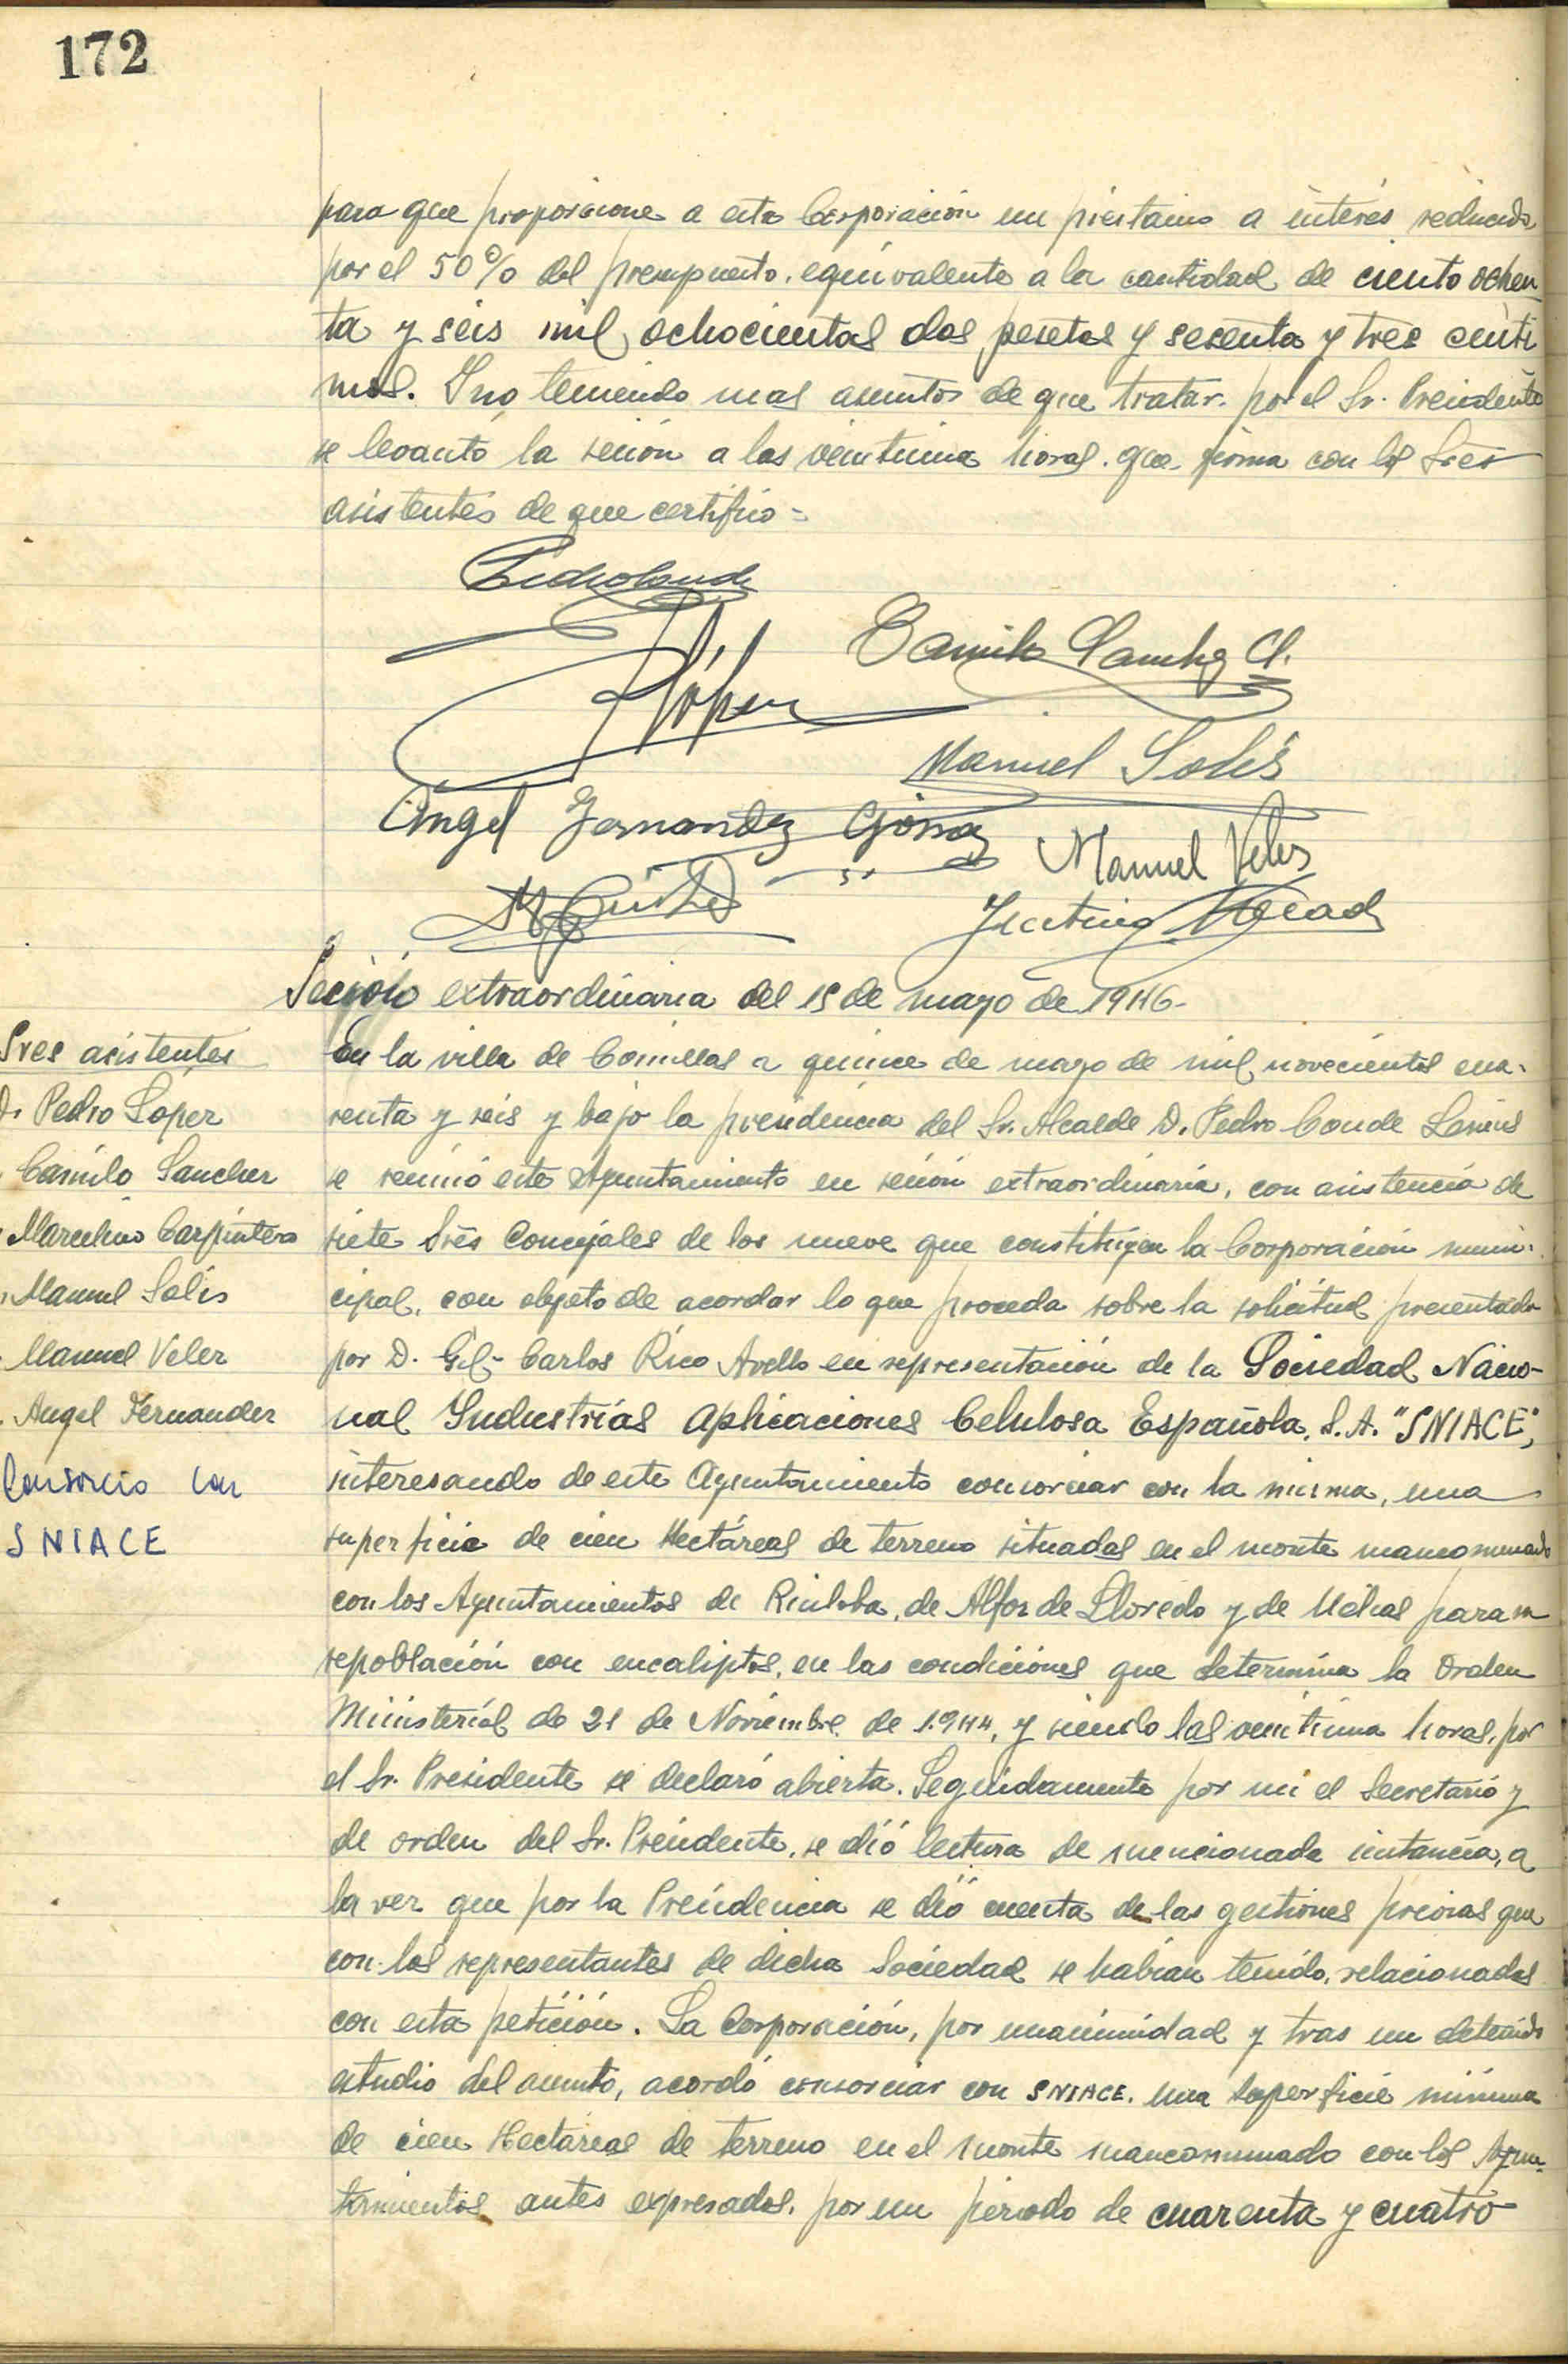 172
para que proporcione a esta Corporación un préstamo a interés reducido
por el 50% del presupuesto, equivalente a la cantidad de ciento ochen
ta y seis mil ochocientas dos pesetas y sesenta y tres cénti
mos. Y no teniendo mas asuntos de que tratar, por el Sr. Presidente
se levantó la sesión a las veintiuna horas, que firma con los Sres
asistentes de que certifico =
Pedro Conde
López
Camilo Sanchez
Manuel Solís
Angel Fernandez
Manuel Velez
Sesión extraordinaria del 15 de mayo de 1946.
Sres asistentes
D. Pedro López
Camilo Sanchez
Marcelino Carpintero
Manuel Solís
Manuel Velez
Angel Fernandez
Consorcio con
SNIACE
En la villa de Comillas a quince de mayo de mil novecientos cua-
renta y seis y bajo la presidencia del Sr. Alcalde D. Pedro Conde
se reunió este Ayuntamiento en sesión extraordinaria, con asistencia de
siete Sres Concejales de los nueve que constituyen la Corporación muni-
cipal, con objeto de acordar lo que proceda sobre la solicitud presentada
por D. Gil-Carlos Rico Avello en representación de la Sociedad Nacio-
nal Industrias Aplicaciones Celulosa Española, S.A. "SNIACE",
interesando de este Ayuntamiento consorciar con la misma, una
superficie de cien Hectáreas de terreno situadas en el monte mancomunado
con los Ayuntamientos de Ruiloba, de Alfoz de Lloredo y de Udías para su
repoblación con encaliptos, en las condiciones que determina la Orden
Ministerial de 21 de Noviembre de 1.944, y siendo las veintiuna horas, por
el Sr. Presidente se declaró abierta. Seguidamente por mi el Secretario y
de orden del Sr. Presidente, se dió lectura de mencionada instancia, a
la vez que por la Presidencia se dió cuenta de las gestiones previas que
con los representantes de dicha Sociedad se habían tenido, relacionadas
con esta petición. La Corporación, por unanimidad y tras un detenido
estudio del asunto, acordó consorciar con SNIACE. una superficie mínima
de cien Hectáreas de terreno en el monte mancomunado con los Ayun-
tamientos antes expresados, por un período de cuarenta y cuatro